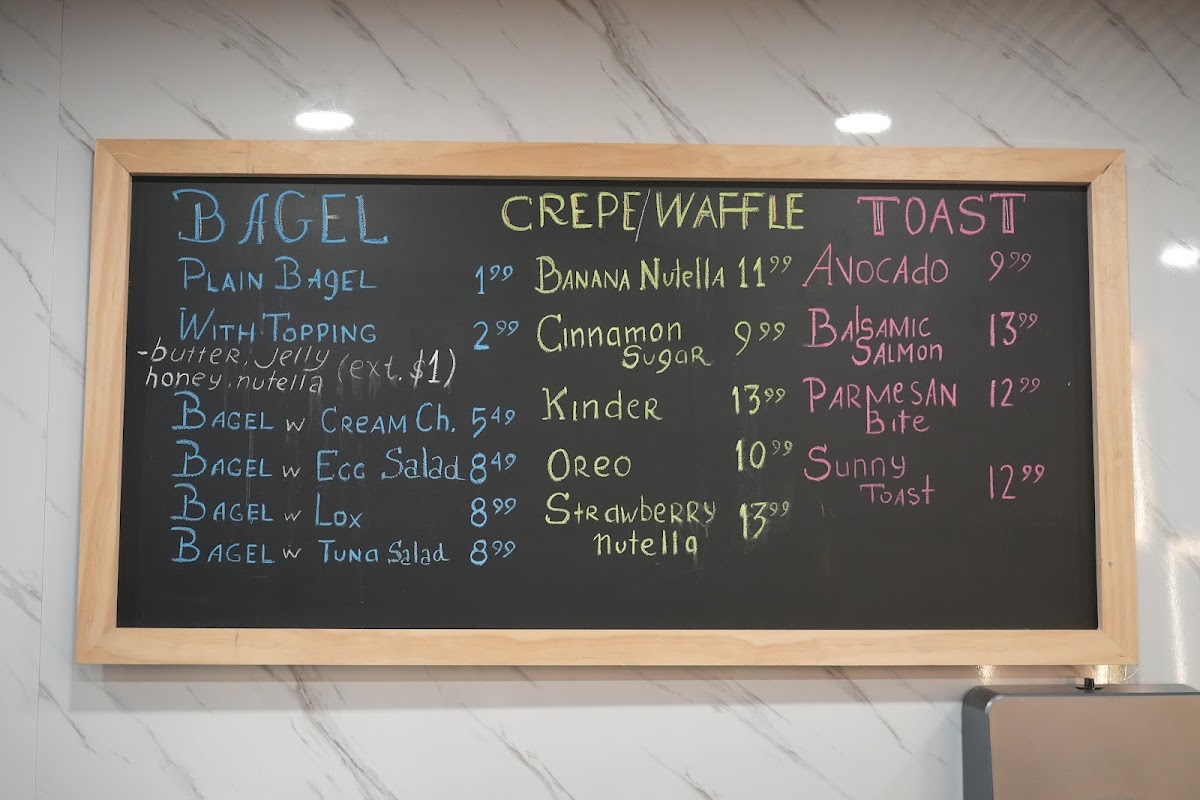 BAGEL
PLAIN BAGEL 1.99
WITH TOPPING 2.99
-butter, jelly
honey, nutella (ext. $1)
BAGEL w CREAM CH. 5.49
BAGEL w EGG Salad 8.49
BAGEL w LOX 8.99
BAGEL w TUNA Salad 8.99
CREPE/WAFFLE
BANANA NUtELLA 11.99
CINNAMON
SUGAR 9.99
KINDER 13.99
OREO 10.99
StRAwbERRY
NUtELLA 13.99
TOAST
AVOCADO 9.99
BALSAMIC
SALMON 13.99
PARMESAN
Bite 12.99
SUNNY
TOASt 12.99